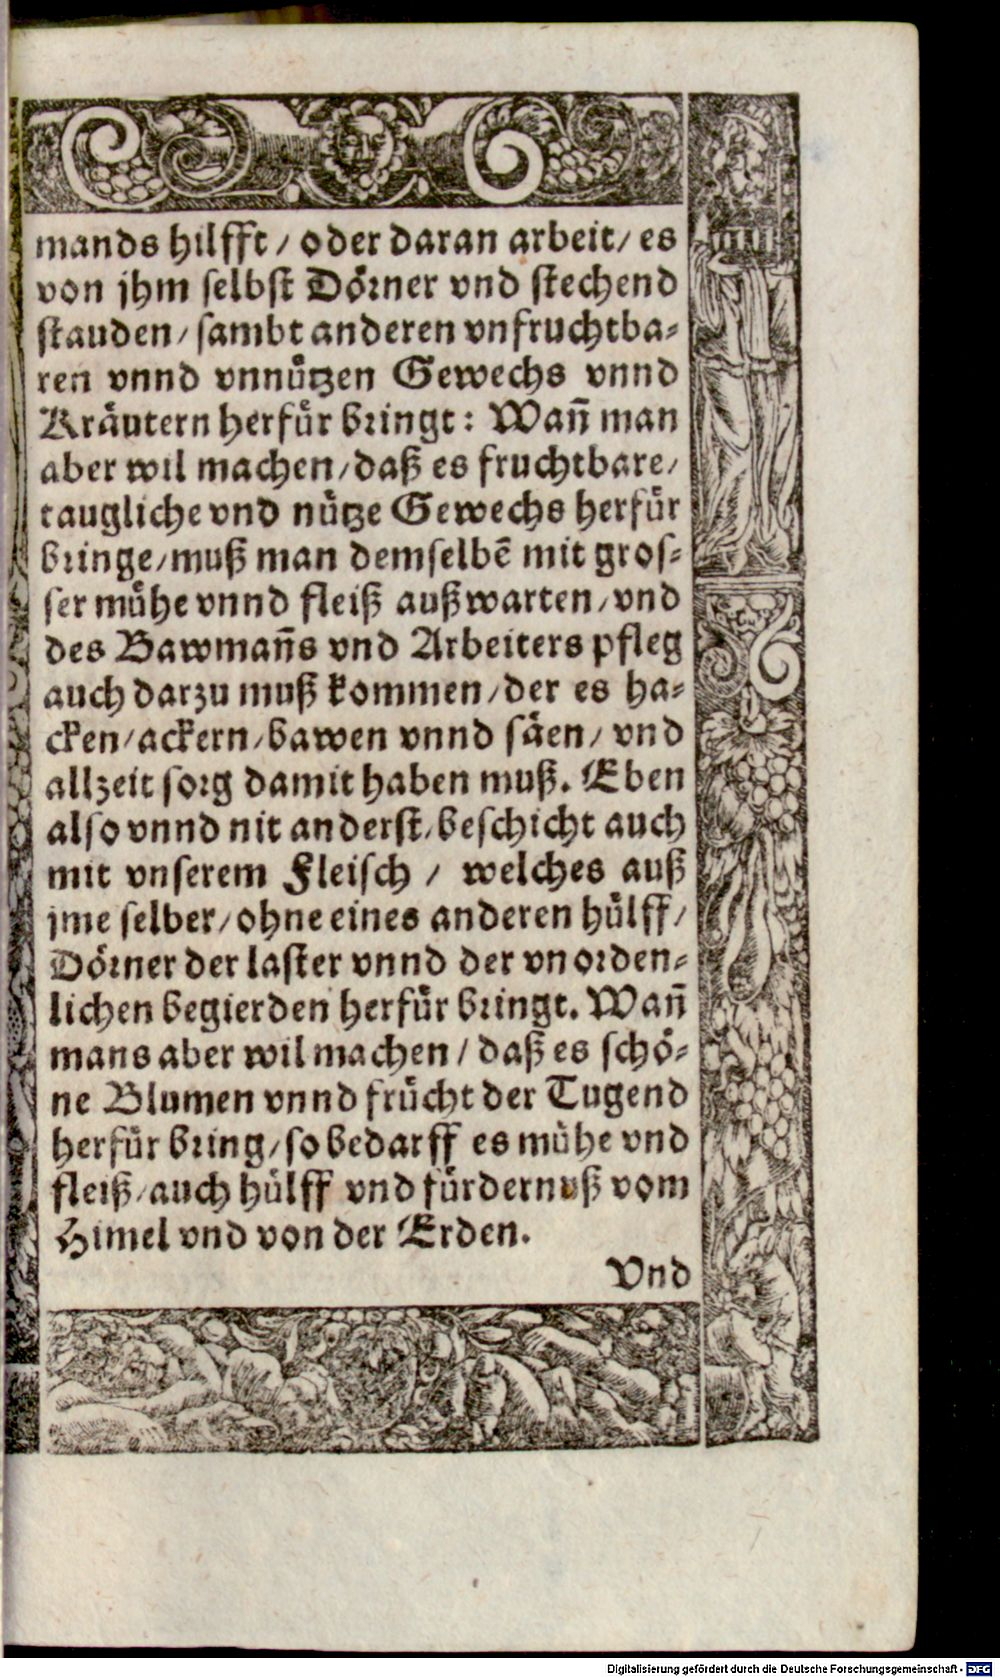 mands hilfft / oder daran arbeit / es
von jhm selbst Dörner vnd stechend
stauden / sambt anderen vnfruchtba-
ren vnnd vnnützen Gewechs vnnd
Kräutern herfür bringt: Wañ man
aber wil machen / daß es fruchtbare /
taugliche vnd nütze Gewechs herfür
bringe / muß man demselbē mit gros-
ser mühe vnnd fleiß außwarten / vnd
des Bawmañs vnd Arbeiters pfleg
auch darzu muß kommen / der es ha-
cken / ackern / bawen vnnd säen / vnd
allzeit sorg damit haben muß. Eben
also vnnd nit anderst / beschicht auch
mit vnserem Fleisch / welches auß
jme selber / ohne eines anderen hülff /
Dörner der laster vnnd der vnorden-
lichen begierden herfür bringt. Wañ
mans aber wil machen / daß es schö-
ne Blumen vnnd frücht der Tugend
herfür bring / so bedarff es mühe vnd
fleiß / auch hülff vnd fürdernuß vom
Himel vnd von der Erden.
Vnd
Digitalisierung gefördert durch die Deutsche Forschungsgemeinschaft - DFG